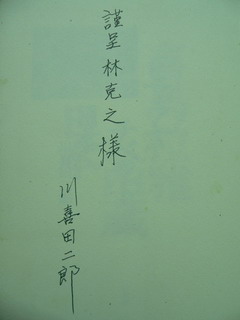 謹呈林克之様
川喜田二郎